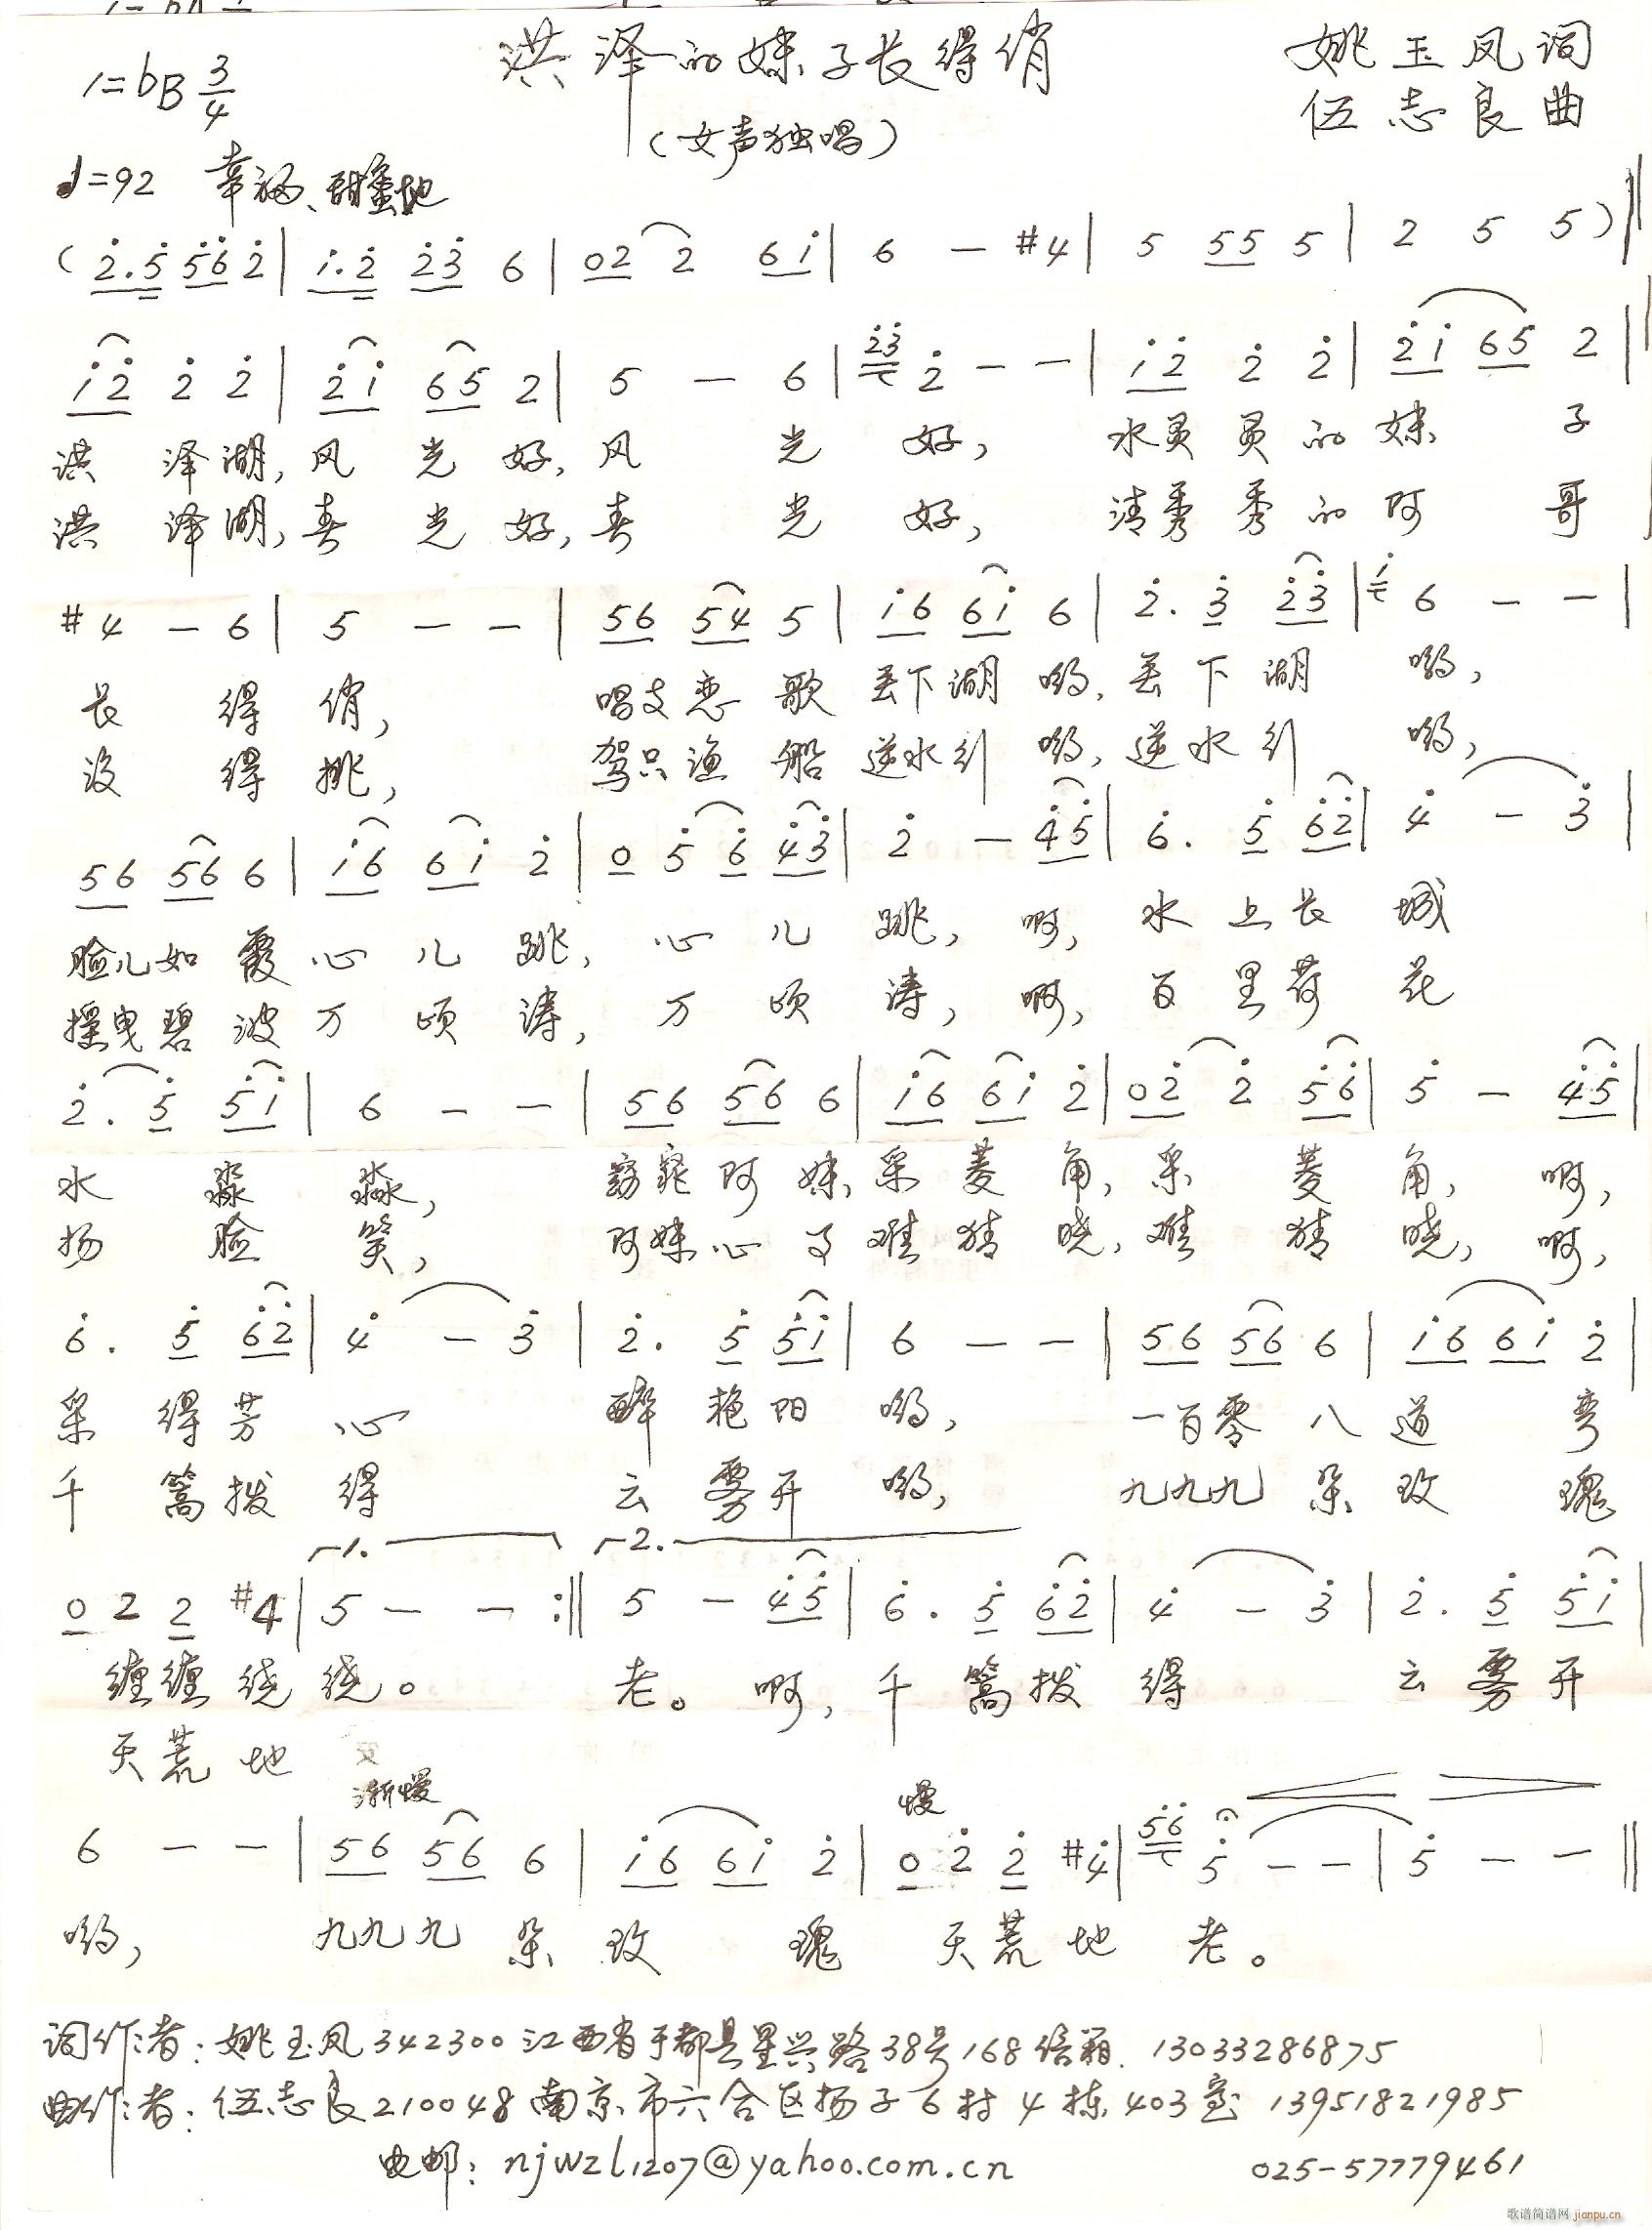 洪泽的妹子长得俏
姚玉凤词
1=bB 3/4
(女声独唱)
伍志良曲
♩=92 幸福、甜蜜地
(2.5 562|1.2 23 6|02 2 61|6 — #4|5 55 5|2 5 5)‖
12 2 2|21 65 2|5 — 6|23 2 — —|12 2 2|21 65 2|
洪泽湖,风光好,风光好,水灵灵的妹子
洪泽湖,春光好,春光好,清秀秀的阿哥
#4 — 6|5 — —|56 54 5|16 61 6|2. 3 23|1 6 — —|
长得俏,唱支恋歌丢下湖哟,丢下湖哟,
没得挑,驾只渔船逆水行哟,逆水行哟,
56 56 6|16 61 2|0 5 6 43|2 — 45|6. 5 62|4 — 3|
脸儿如霞心儿跳,心儿跳,啊,水上长城
摇曳碧波万顷涛,万顷涛,啊,百里荷花
2. 5 51|6 — —|56 56 6|16 61 2|02 2 56|5 — 45|
水淼淼,窈窕阿妹采菱角,采菱角,啊,
扬脸笑,阿妹心事难猜晓,难猜晓,啊,
6. 5 62|4 — 3|2. 5 51|6 — —|56 56 6|16 61 2|
采得芳心醉艳阳哟,一百零八道弯
千篙拨得云雾开哟,九九九朵玫瑰
1. 2.
0 2 2 #4|5 — — :‖ 5 — 45|6. 5 62|4 — 3|2. 5 51|
缠缠绕绕。老。啊,千篙拨得云雾开
天荒地
渐慢 慢
6 — —|56 56 6|16 61 2|0 2 2 #4|56 5 — —|5 — —‖
哟,九九九朵玫瑰天荒地老。
词作者:姚玉凤342300江西省于都县星兴路38号168信箱. 13033286875
曲作者:伍志良210048南京市六合区扬子6村4栋403室 13951821985
电邮:njwzl1207@yahoo.com.cn 025-57779461
歌谱简谱网 jianpu.cn